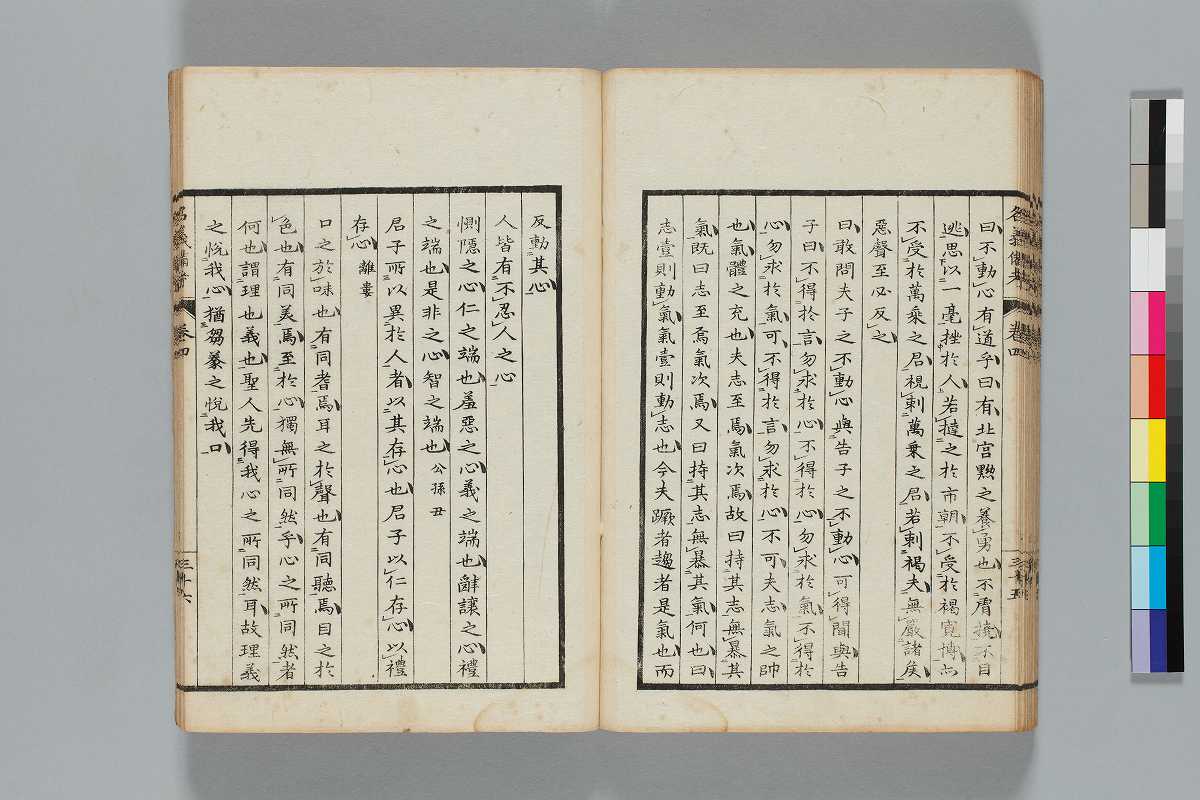 曰不動心有道乎曰有北宮黝之養勇也不膚撓不目
逃思以一毫挫於人若撻之於市朝不受於褐寬博亦
不受於萬乘之君視刺萬乘之君若刺褐夫無嚴諸矦
惡聲至必反之
曰敢問夫子之不動心與告子之不動心可得聞與告
子曰不得於言勿求於心不得於心勿求於氣不得於
心勿求於氣可不得於言勿求於心不可夫志氣之帥
也氣體之充也夫志至焉氣次焉故曰持其志無暴其
氣既曰志至焉氣次焉又曰持其志無暴其氣何也曰
志壹則動氣氣壹則動志也今夫蹶者趨者是氣也而
卷四
三十五
反動其心
人皆有不忍人之心
惻隱之心仁之端也羞惡之心義之端也辭讓之心禮
之端也是非之心智之端也 公孫丑
君子所以異於人者以其存心也君子以仁存心以禮
存心 離婁
口之於味也有同耆焉耳之於聲也有同聽焉目之於
色也有同美焉至於心獨無所同然乎心之所同然者
何也謂理也義也聖人先得我心之所同然耳故理義
之悅我心猶芻豢之悅我口
卷四
三十六